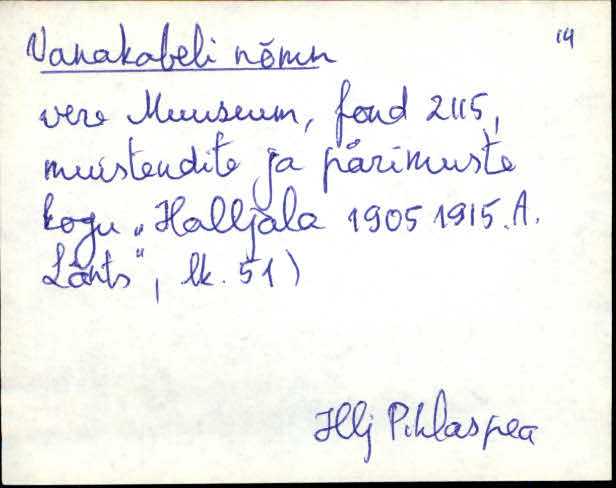 Vanakabeli nõmm 14
vere Muuseum, fond 2115,
muistendite ja pärimuste
kogu „Halljala 1905 1915. A.
Länts“, lk. 51)
Hlj Pihlaspea